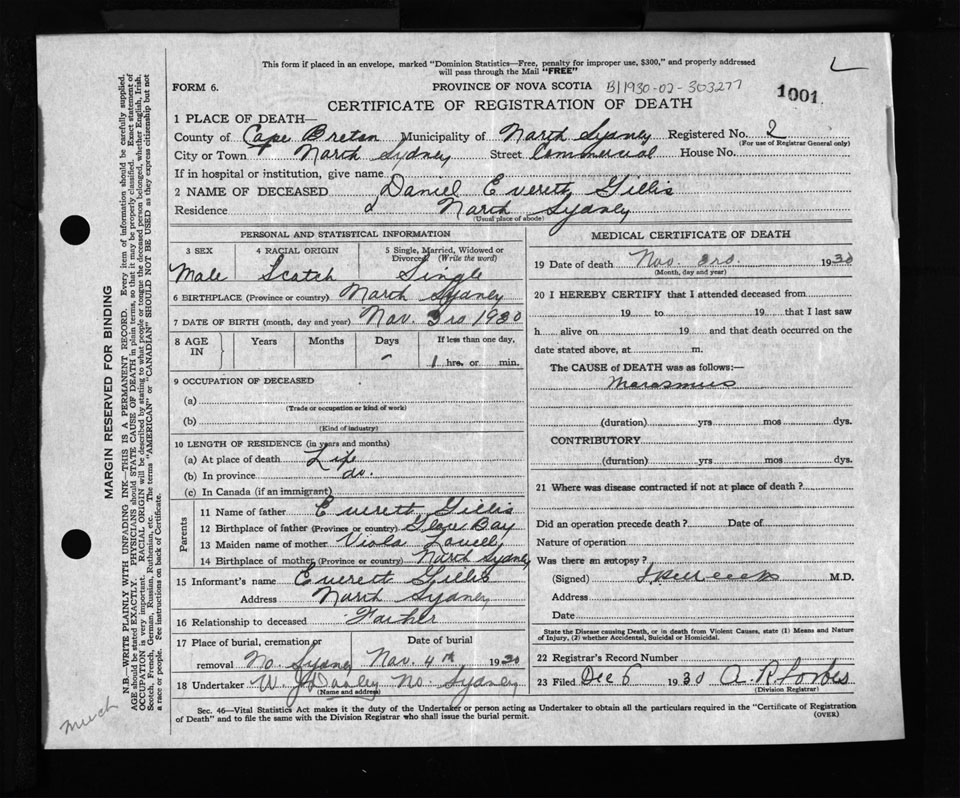 This form if placed in an envelope, marked "Dominion Statistics—Free, penalty for improper use, $300," and properly addressed
will pass through the Mail "FREE"
FORM 6. PROVINCE OF NOVA SCOTIA B|1930-02-303277
1001
CERTIFICATE OF REGISTRATION OF DEATH
1 PLACE OF DEATH—
County of Cape Breton Municipality of North Sydney Registered No. 2
(For use of Registrar General only)
City or Town North Sydney Street Commercial House No.
If in hospital or institution, give name
2 NAME OF DECEASED Daniel Everett Gillis
Residence North Sydney
(Usual place of abode)
PERSONAL AND STATISTICAL INFORMATION
3 SEX 4 RACIAL ORIGIN 5 Single, Married, Widowed or Divorced (Write the word)
Male Scotch Single
6 BIRTHPLACE (Province or country) North Sydney
7 DATE OF BIRTH (month, day and year) Nov. 3rd 1930
8 AGE IN Years Months Days If less than one day,
1 hrs. or min.
9 OCCUPATION OF DECEASED
(a)
(Trade or occupation or kind of work)
(b)
(Kind of industry)
10 LENGTH OF RESIDENCE (in years and months)
(a) At place of death Life
(b) In province do.
(c) In Canada (if an immigrant)
Parents
11 Name of father Everett Gillis
12 Birthplace of father (Province or country) Glace Bay
13 Maiden name of mother Viola Lowell
14 Birthplace of mother (Province or country) North Sydney
15 Informant's name Everett Gillis
Address North Sydney
16 Relationship to deceased Father
17 Place of burial, cremation or Date of burial
removal No. Sydney Nov. 4th 1930
18 Undertaker W. No. Sydney
(Name and address)
MEDICAL CERTIFICATE OF DEATH
19 Date of death Nov. 3rd. 1930
(Month, day and year)
20 I HEREBY CERTIFY that I attended deceased from
19 to 19 that I last saw
h alive on 19 and that death occurred on the
date stated above, at m.
The CAUSE of DEATH was as follows:—
Marasmus
(duration) yrs mos dys.
CONTRIBUTORY
(duration) yrs mos dys.
21 Where was disease contracted if not at place of death?
Did an operation precede death? Date of
Nature of operation
Was there an autopsy?
(Signed) M.D.
Address
Date
State the Disease causing Death, or in death from Violent Causes, state (1) Means and Nature
of Injury, (2) whether Accidental, Suicidal or Homicidal.
22 Registrar's Record Number
23 Filed Dec 6 1930 A. R. Forbes
(Division Registrar)
Sec. 46—Vital Statistics Act makes it the duty of the Undertaker or person acting as Undertaker to obtain all the particulars required in the "Certificate of Registration
of Death" and to file the same with the Division Registrar who shall issue the burial permit. (OVER)
MARGIN RESERVED FOR BINDING
N.B.—WRITE PLAINLY WITH UNFADING INK—THIS IS A PERMANENT RECORD. Every item of information should be carefully supplied.
AGE should be stated EXACTLY. PHYSICIANS should STATE CAUSE OF DEATH in plain terms, so that it may be properly classified. Exact statement of
OCCUPATION is very important. RACIAL ORIGIN will be described by stating to what people or tongue the deceased person belonged, whether English, Irish,
Scotch, French, German, Russian, Ruthenian, etc. The terms "AMERICAN" or "CANADIAN" SHOULD NOT BE USED as they express citizenship but not
a race or people. See instructions on back of Certificate.